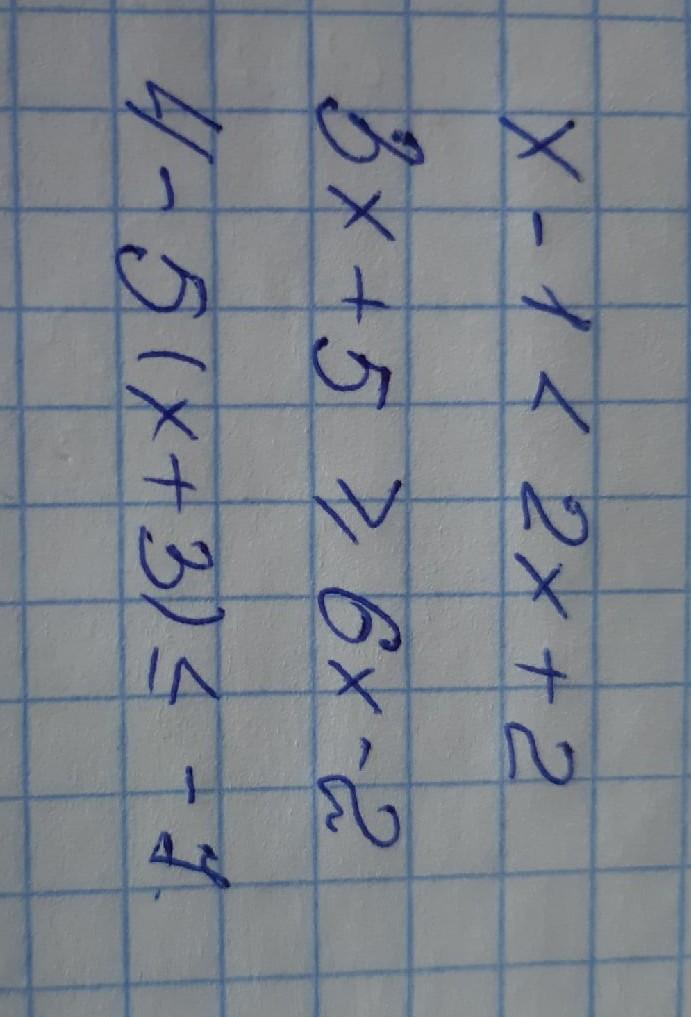 x - 1 < 2x + 2
3x + 5 ⩾ 6x - 2
4 - 5(x + 3) ≤ - 1